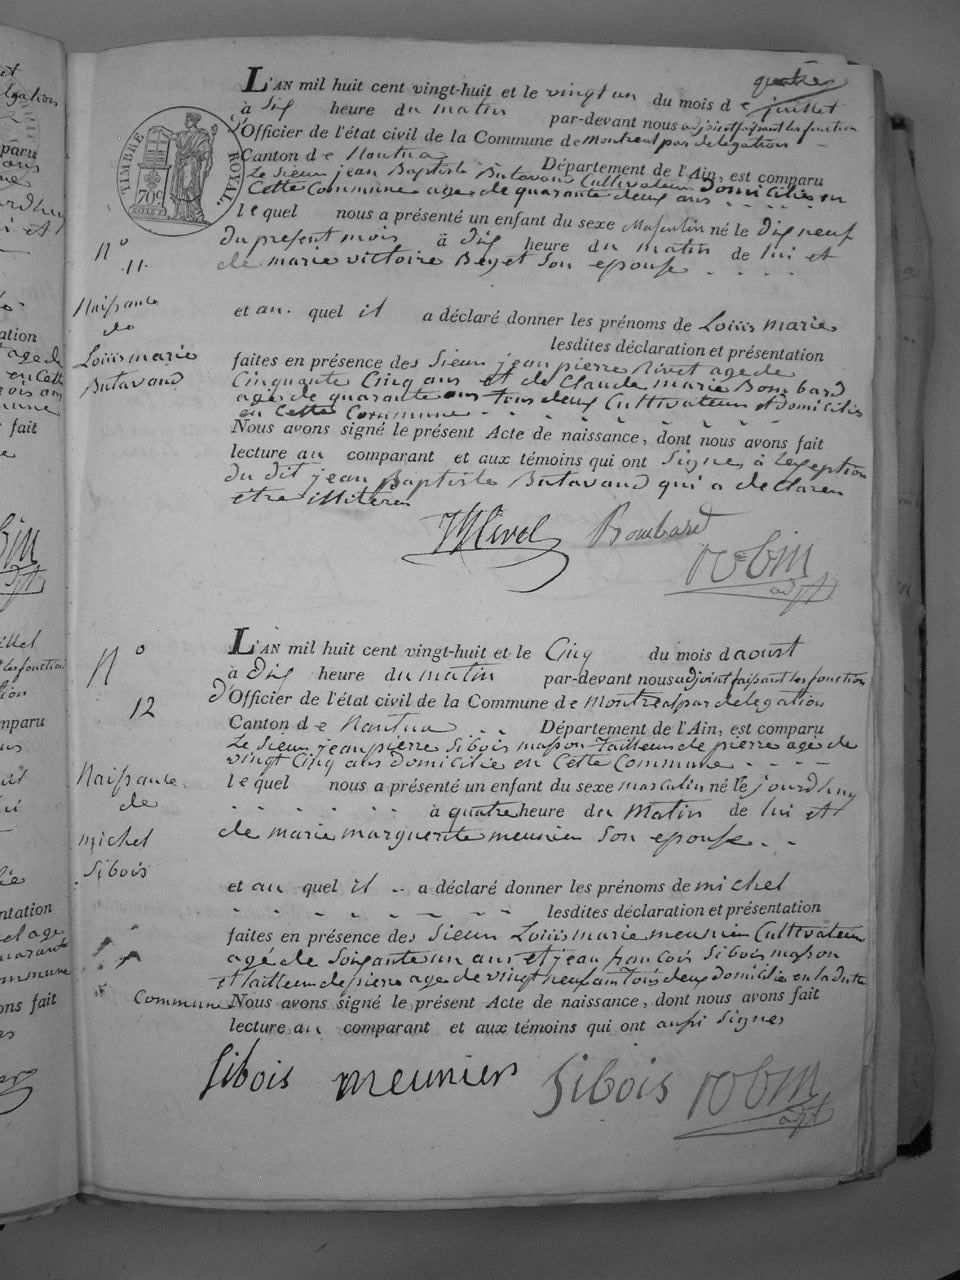 quatre
L'AN mil huit cent vingt-huit et le vingt un du mois de juillet
à dix heure du matin par-devant nous adjoint faisant les fonction
d'Officier de l'état civil de la Commune de Montreal par delegation
Canton de Nantua Département de l'Ain, est comparu
Le Sieur jean Baptiste Butavand Cultivateur domicilié en
Cette Commune age de quarante deux ans
lequel nous a présenté un enfant du sexe Masculin né le dix neuf
du present mois à dix heure du matin de lui et
de marie victoire Beyet Son epouse
et au quel il a déclaré donner les prénoms de Louis marie
lesdites déclaration et présentation
faites en présence des Sieur jean pierre Rivet age de
Cinquante Cinq ans et de Claude marie Bombard
age de quarante ans tous deux Cultivateur et domicilié
en Cette Commune
Nous avons signé le présent Acte de naissance, dont nous avons fait
lecture au comparant et aux témoins qui ont Signes à l'exeption
du dit jean Baptiste Butavand qui a declaren
etre illiteré
Rivet Bombard robin
adjt
TIMBRE ROYAL
70c
N°
11.
Naissance
de
Louis marie
Butavand
L'AN mil huit cent vingt-huit et le Cinq du mois d'aoust
à dix heure du matin par-devant nous adjoint faisant les fonction
d'Officier de l'état civil de la Commune de Montreal par delegation
Canton de Nantua Département de l'Ain, est comparu
Le Sieur jean pierre Sibois masson tailleur de pierre age de
vingt Cinq ans domicilié en Cette Commune
lequel nous a présenté un enfant du sexe masculin né le jourdhuy
à quatre heure du Matin de lui et
de marie marguerite meunier Son epouse
et au quel il a déclaré donner les prénoms de michel
lesdites déclaration et présentation
faites en présence des Sieur Louis marie meunier Cultivateur
agé de Soixante un ans et jean francois Sibois masson
et tailleur de pierre age de vingt neuf ans tous deux domicilié en la ditte
Commune Nous avons signé le présent Acte de naissance, dont nous avons fait
lecture au comparant et aux témoins qui ont aussi Signes
Sibois meunier Sibois robin
adjt
N°
12
Naissance
de
michel
Sibois